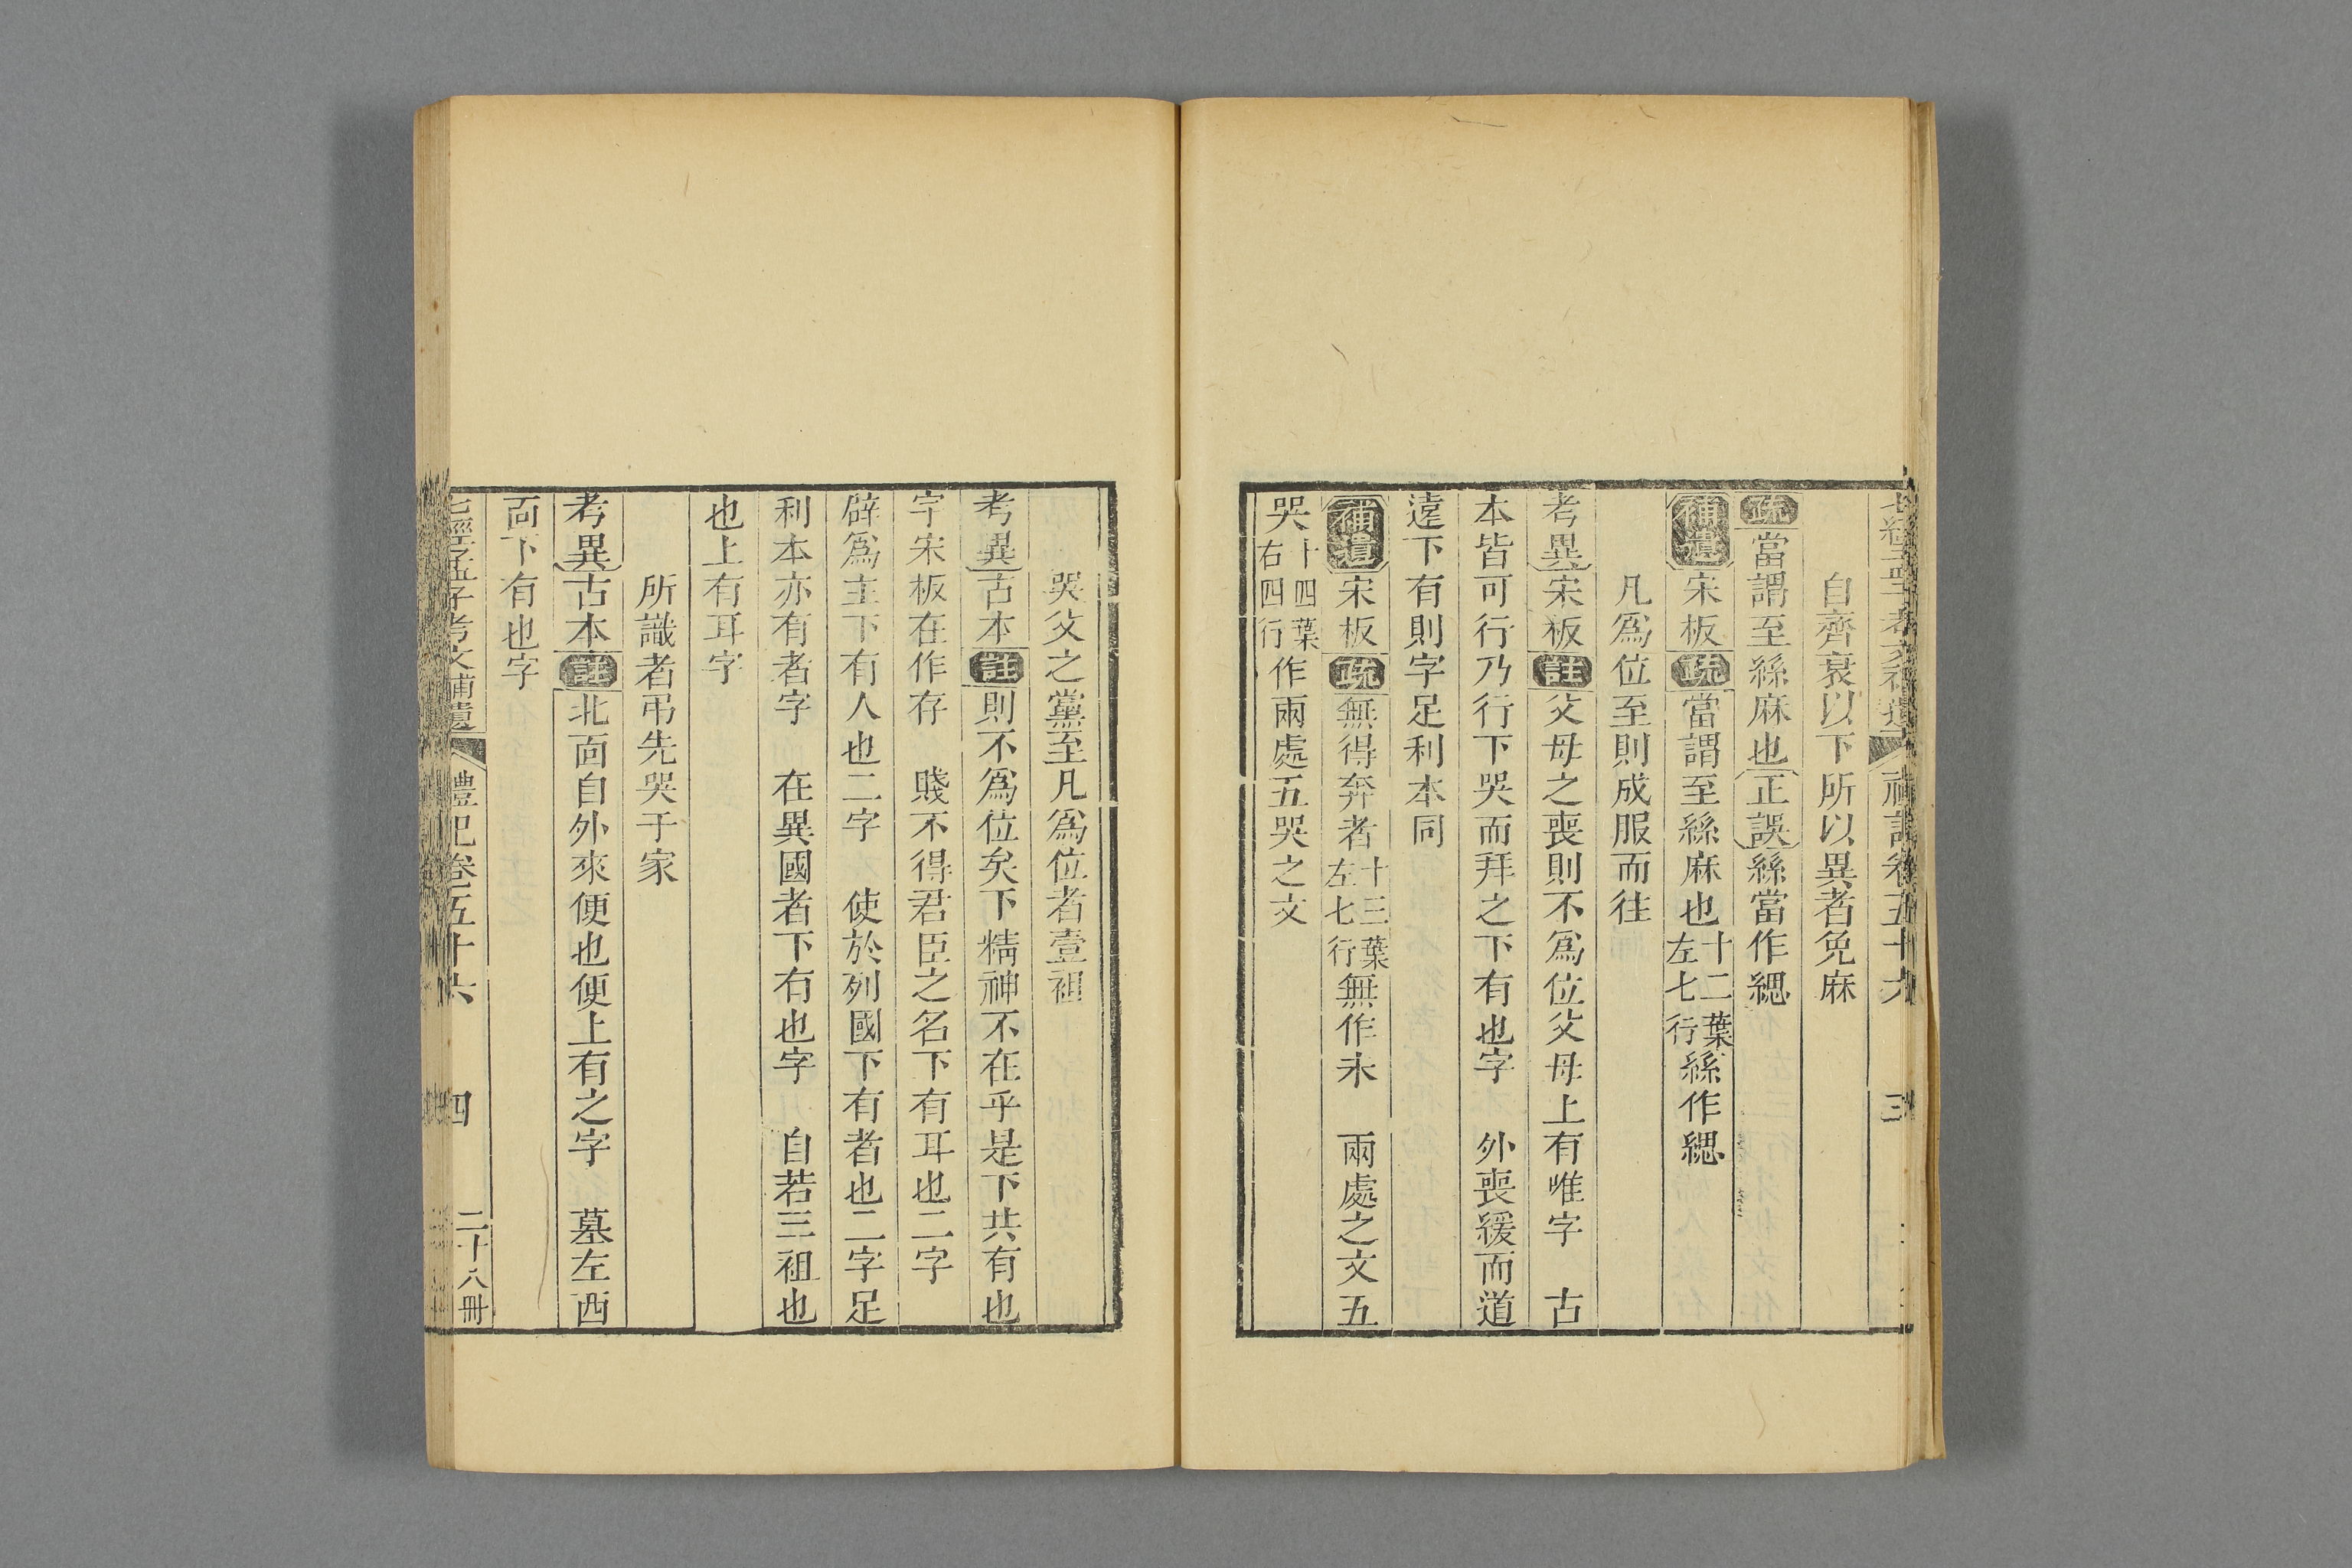 七經孟子考文補遺 禮記卷五十六 三
自齊衰以下所以異者免麻
疏當謂至絲麻也正誤絲當作緦
補遺宋板疏當謂至絲麻也十二葉左七行絲作緦
凡爲位至則成服而往
考異宋板註父母之喪則不爲位父母上有唯字 古
本皆可行乃行下哭而拜之下有也字 外喪緩而道
遠下有則字足利本同
補遺宋板疏無得奔者十三葉左七行無作未 兩處之文五
哭十四葉右四行作兩處五哭之文
哭父之黨至凡爲位者壹袒
考異古本註則不爲位矣下精神不在乎是下共有也
字宋板在作存 賤不得君臣之名下有耳也二字
辟爲主下有人也二字 使於列國下有者也二字足
利本亦有者字 在異國者下有也字 自若三袒也
也上有耳字
所識者弔先哭于家
考異古本註北面自外來便也便上有之字 墓左西
面下有也字
七經孟子考文補遺 禮記卷五十六 四 二十八冊